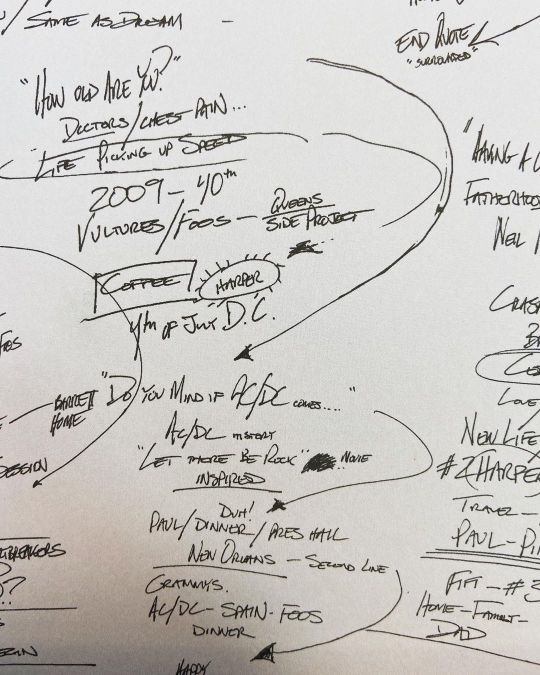 / SAME AS DREAM —
END QUOTE
"SURROUNDED"
"HOW OLD ARE YOU?"
DOCTORS/CHEST PAIN...
LIFE PICKING UP SPEED
2009 - 40th
VULTURES/FOOS — QUEENS
SIDE PROJECT
COFFEE HARPER
4th OF JULY D.C.
BARRETT
HOME
"DO YOU MIND IF AC/DC COMES...."
AC/DC HISTORY
"LET THERE BE ROCK" MOVIE
INSPIRED
DUH!
PAUL/DINNER/PRES HALL
NEW ORLEANS — SECOND LINE
GRAMMYS.
AC/DC - SPAIN - FOOS
DINNER
HAPPY
"HAVING A
FATHERHOOD
NEIL
CRASH
LOVE
NEW LIFE
#2 HARPER
TRAVEL —
PAUL - 
FIFI - #3
HOME - FAMILY -
DAD